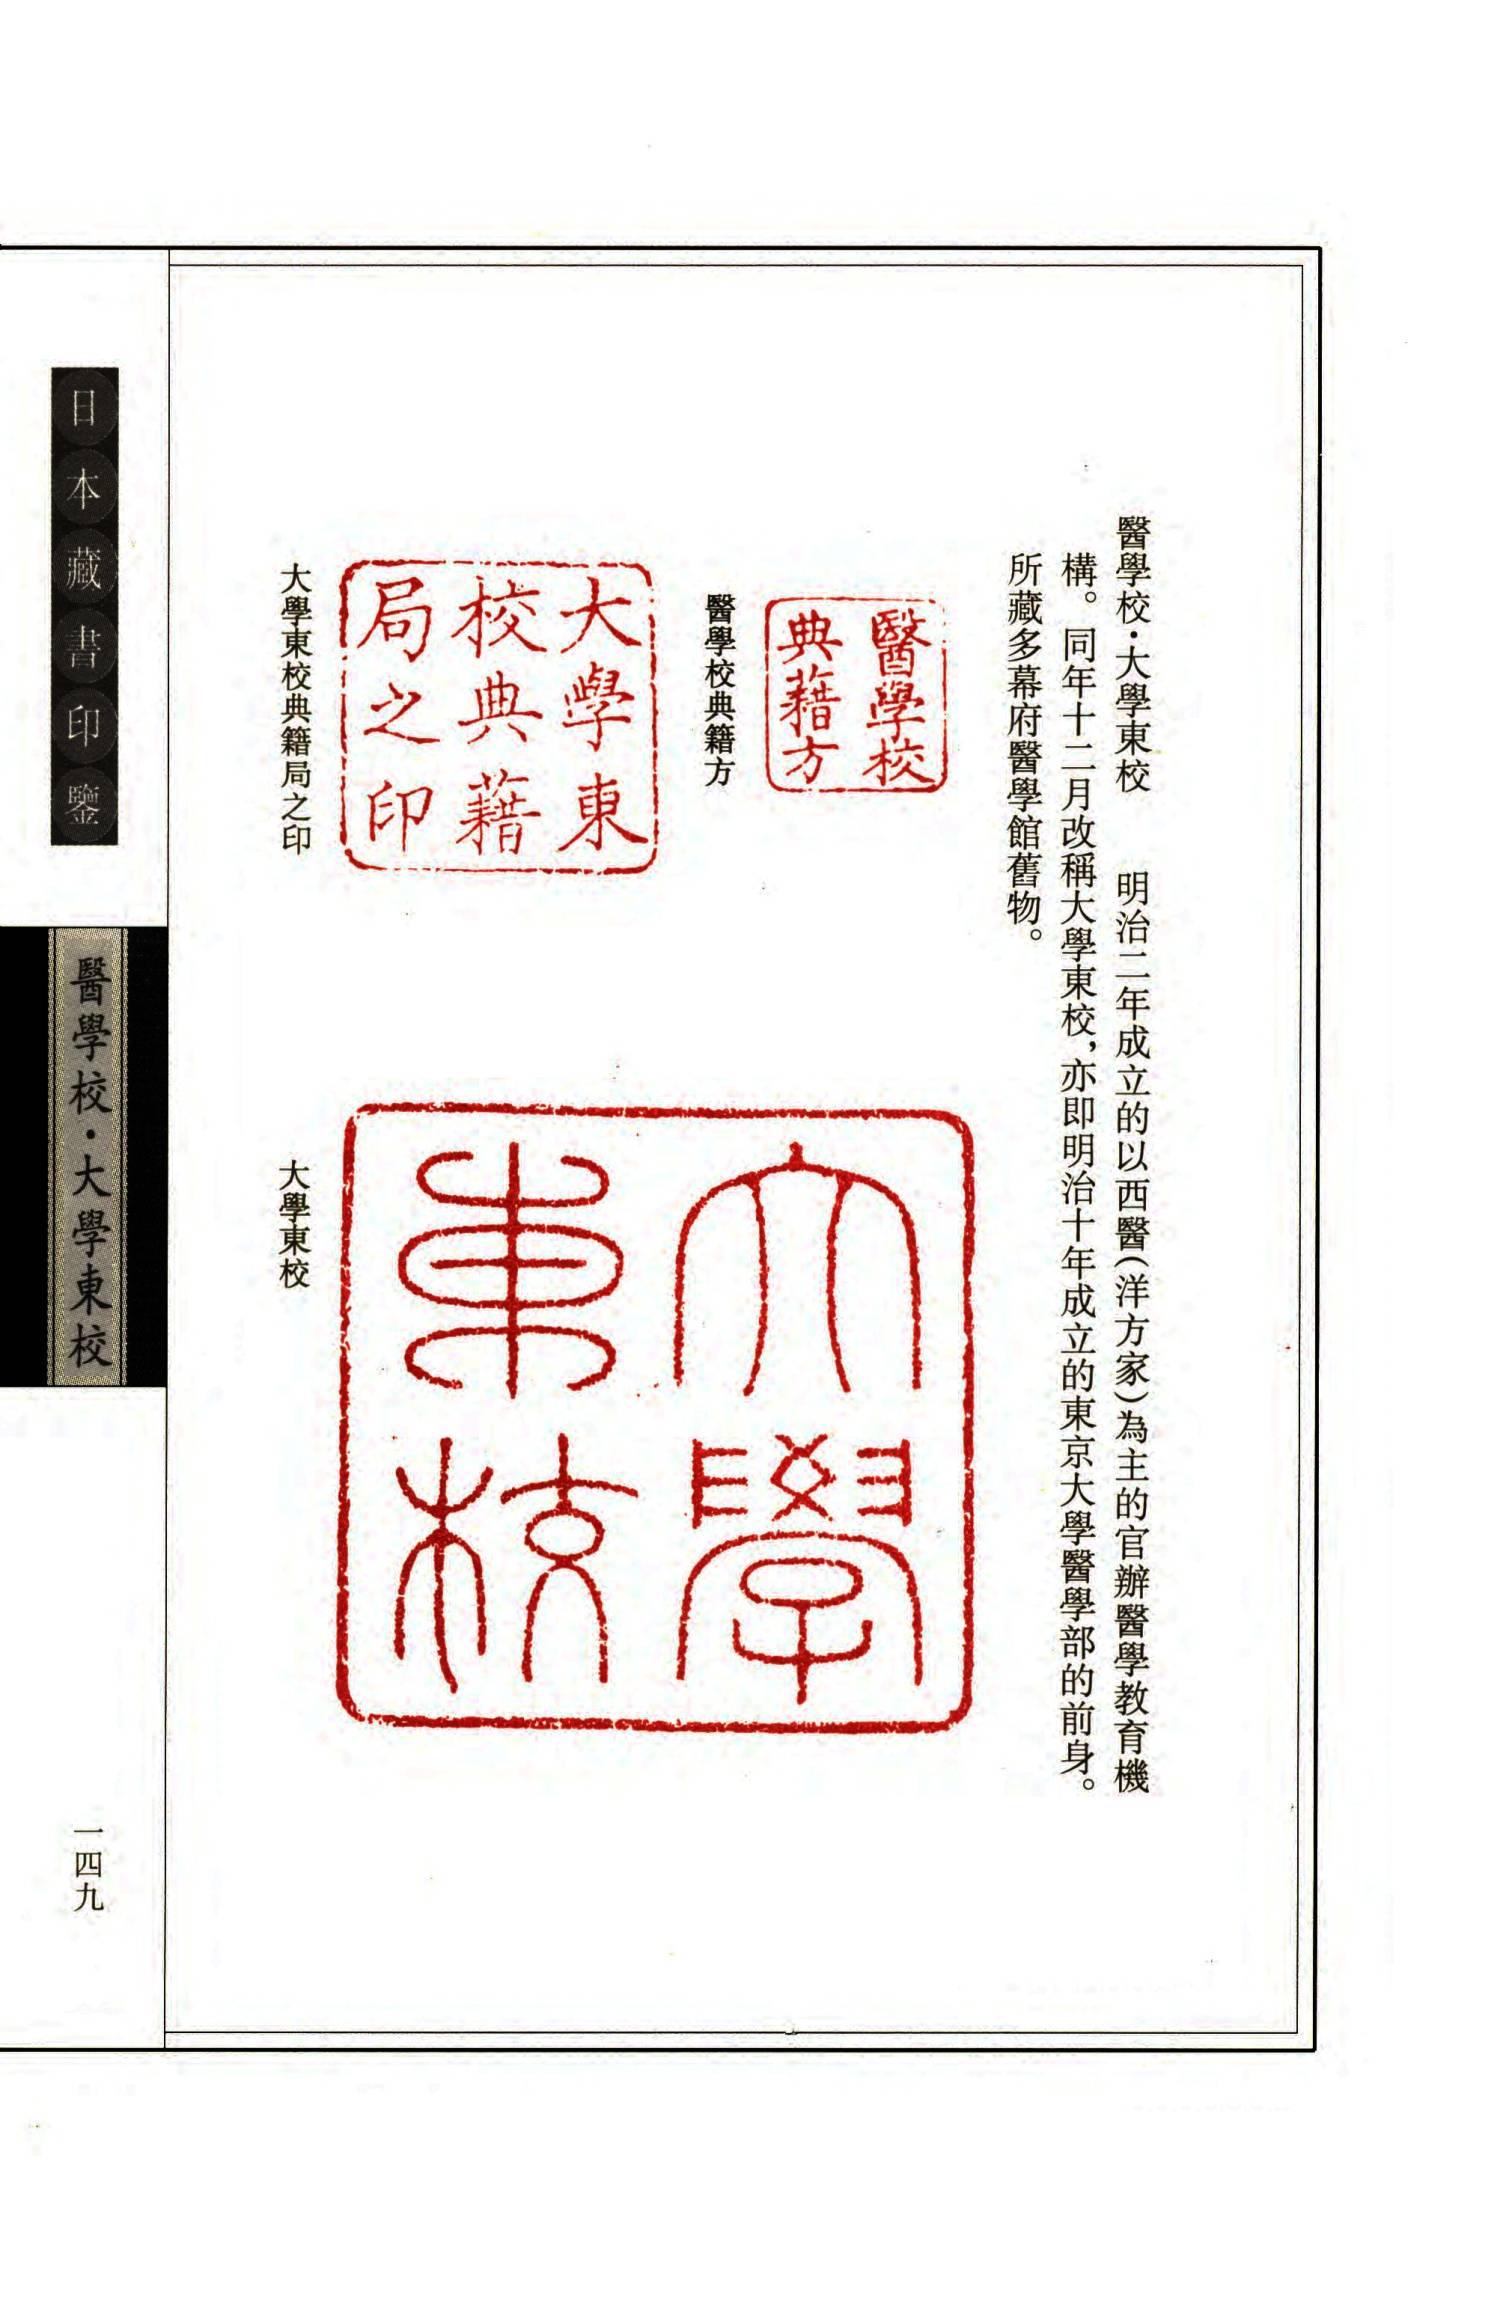 醫學校·大學東校　明治二年成立的以西醫(洋方家)為主的官辦醫學教育機
構。同年十二月改稱大學東校,亦即明治十年成立的東京大學醫學部的前身。
所藏多幕府醫學館舊物。
醫學校
典籍方
醫學校典籍方
大學東
校典藉
局之印
大學東校典籍局之印
大學
東校
大學東校
日本藏書印鑒
醫學校·大學東校
一四九